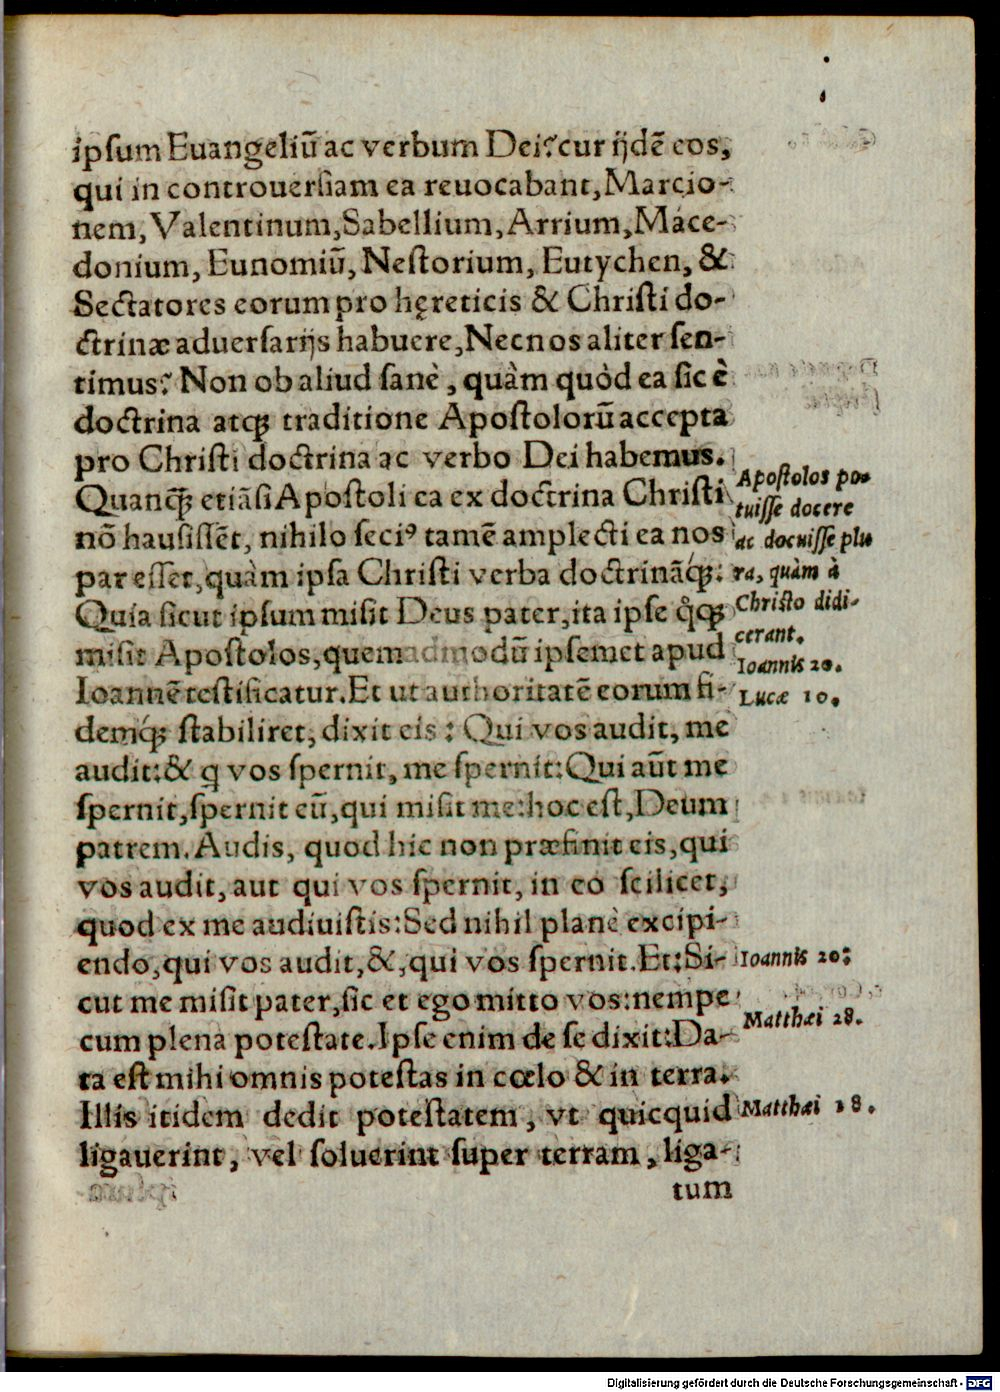 ipſum Euangeliū ac verbum Dei? cur ijdē eos,
qui in controuerſiam ea reuocabant, Marcio-
nem, Valentinum, Sabellium, Arrium, Mace-
donium, Eunomiū, Neſtorium, Eutychen, &
Sectatores eorum pro hęreticis & Chriſti do-
ctrinæ aduerſarijs habuere, Nec nos aliter ſen-
timus? Non ob aliud ſanè, quàm quòd ea ſic è
doctrina atqꝫ traditione Apoſtolorū accepta
pro Chriſti doctrina ac verbo Dei habemus.
Quanqꝫ etiāſi Apoſtoli ea ex doctrina Chriſti
nō hauſiſſēt, nihilo ſeciꝰ tamē amplecti ea nos
par eſſet, quàm ipſa Chriſti verba doctrināqꝫ:
Quia ſicut ipſum miſit Deus pater, ita ipſe q̊qꝫ
miſit Apoſtolos, quemadmodū ipſemet apud
Ioannē teſtificatur. Et ut authoritatē eorum fi-
demqꝫ́ ſtabiliret, dixit eis: Qui vos audit, me
audit: & q vos ſpernit, me ſpernit: Qui aūt me
ſpernit, ſpernit eū, qui miſit me: hoc eſt, Deum
patrem. Audis, quod hic non præfinit eis, qui
vos audit, aut qui vos ſpernit, in eo ſcilicet,
quod ex me audiuiſtis: Sed nihil planè excipi-
endo, qui vos audit, &, qui vos ſpernit. Et: Si-
cut me miſit pater, ſic et ego mitto vos: nempe
cum plena poteſtate. Ipſe enim de ſe dixit: Da-
ta eſt mihi omnis poteſtas in cœlo & in terra.
Illis itidem dedit poteſtatem, vt quicquid
ligauerint, vel ſoluerint ſuper terram, liga-
tum
Apoſtolos po-
tuiſſe docere
ac docuiſſe plu
ra, quàm à
Chriſto didi-
cerant.
Ioannis 20.
Lucæ 10.
Ioannis 20:
Matthæi 28.
Matthæi 18.
Digitalisierung gefördert durch die Deutsche Forschungsgemeinschaft - DFG